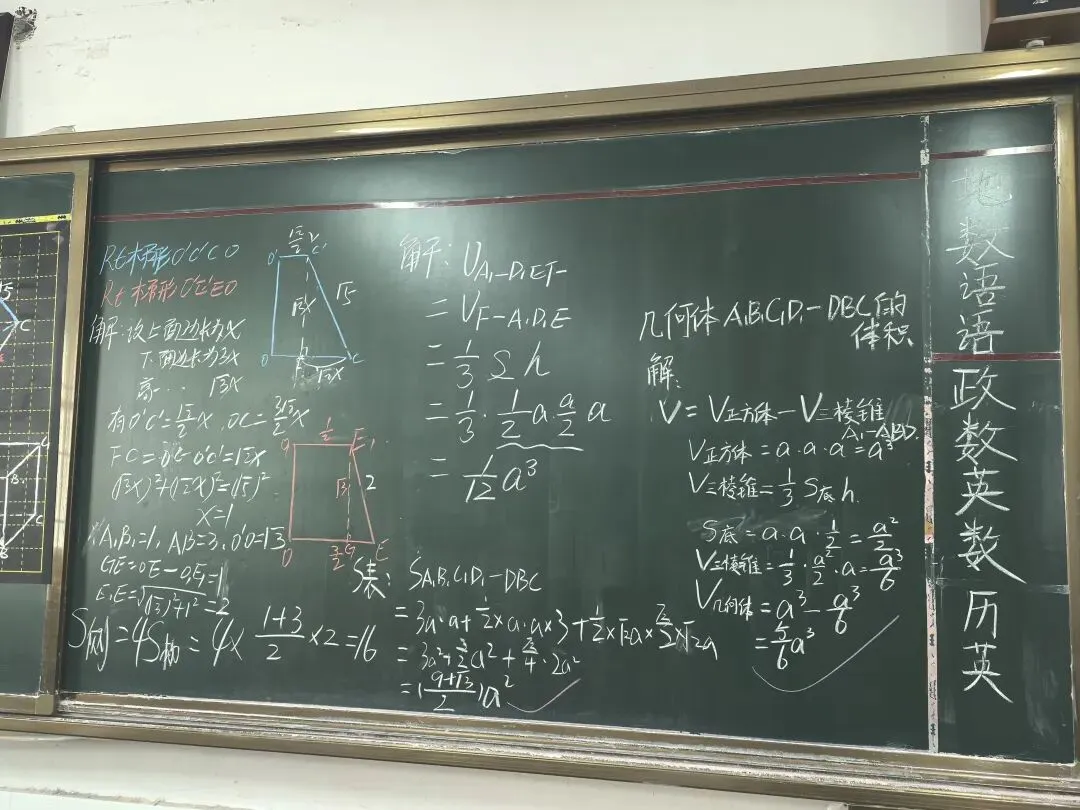 Rt梯形O'C'CO
Rt梯形O'E'EO
解:设上面边长为x
下面边长为3x
高… √3x
有O'C'=√2/2x, OC=3√2/2x
FC=OC-O'C'=√2x
(√3x)²+(√2x)²=(√5)²
x=1
∴A₁B₁=1, AB=3, O'O=√3
GE=OE-O₁E₁=1
E₁E=√(√3)²+1²=2
S侧=4S梯=4×(1+3)/2×2=16
O'
√2/2x
C'
√3x
√5
O
C
√2x
O₁
1/2
E₁
√3
2
O
3/2
G
E
解:V A₁-D₁EF
=V F-A₁D₁E
=1/3 S h
=1/3·1/2a·a/2 a
=1/12a³
S表: S A₁B₁C₁D₁-DBC
=3a·a+1/2×a·a×3+1/2×√2a×√3/2×√2a
=3a²+3/2a²+√3/4·2a²
=(9+√3/2)a²
几何体A₁B₁C₁D₁-DBC的
体积
解:
V=V正方体-V三棱锥
A₁-ABD.
V正方体=a·a·a=a³
V三棱锥=1/3 S底h.
S底=a·a·1/2=a²/2
V三棱锥=1/3·a²/2·a=a³/6
V几何体=a³-a³/6
=5/6a³
地
数
语
语
政
数
英
数
历
英